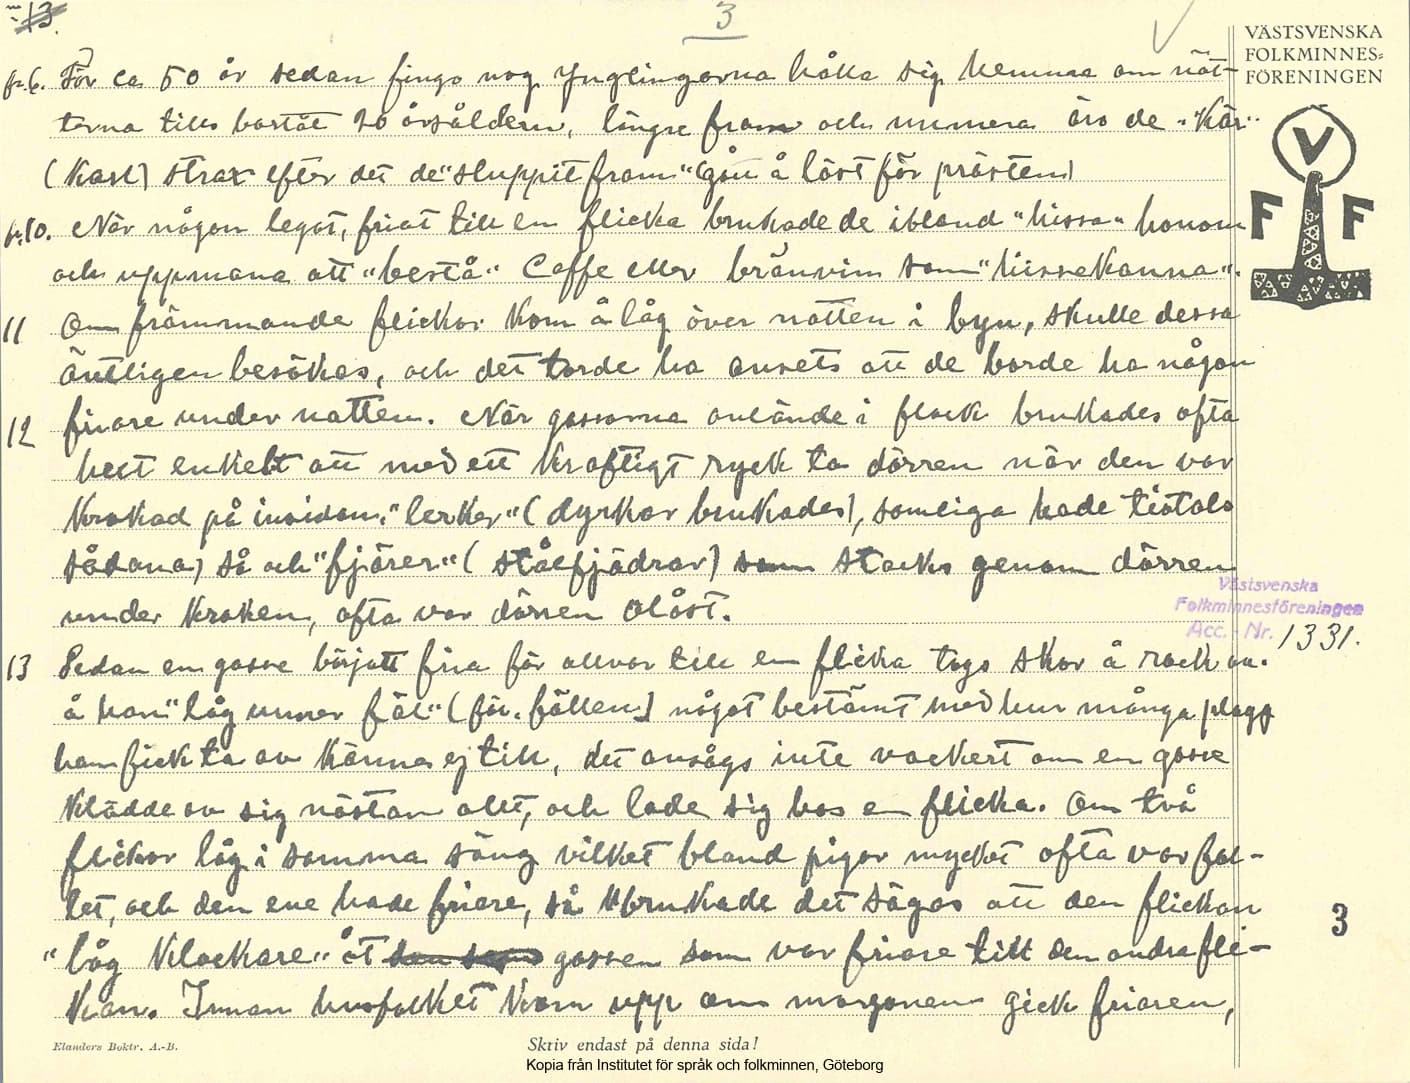 13.
3
VÄSTSVENSKA
FOLKMINNES=
FÖRENINGEN
fr. 6. För ca 50 år sedan fingo nog Ynglingarna hålla sig hemma om nät-
terna tills bortåt 20 årsåldern, längre fram och numera äro de "Kär"
(Karl) strax efter det de "sluppit fram" (gån å läst för prästen)
fr. 10. När någon legat, friat till en flicka brukade de ibland "hissa" honom
och uppmana att "bestå" Caffe eller bränvin som "hissekanna".
11 Om främmande flickor kom å låg över natten i byn, skulle dessa
äntligen besökas, och det torde ha ansets att de borde ha någon
friare under natten.
12 När gossarna anlände i flock brukades ofta
helt enkelt att med ett kraftigt ryck ta dörren när den var
krokad på insidan, "lerker" (dyrkar brukades), somliga hade tiotals
sådana) så och "fjärer" (stålfjädrar) som stacks genom dörren
under kroken, ofta var dörren olåst.
Västsvenska
Folkminnesföreningen
Acc. - Nr. 1331.
13 Sedan en gosse börjatt fria för allvar till en flicka togs skor å rock av.
å han "låg unner fäl" (för. fällen) något bestämt med hur många plagg
han fick ta av känner ej till, det ansågs inte vackert om en gosse
klädde av sig nästan allt, och lade sig hos en flicka. Om två
flickor låg i samma säng vilket bland pigor mycket ofta var fal-
let, och den ene hade friare, så brukade det sägas att den flickan
"låg klockare" åt gossen som var friare till den andra fli-
kan. Innan husfolket kom upp om morgonen gick friaren,
V
F F
3
Elanders Boktr. A.-B.
Skriv endast på denna sida!
Kopia från Institutet för språk och folkminnen, Göteborg